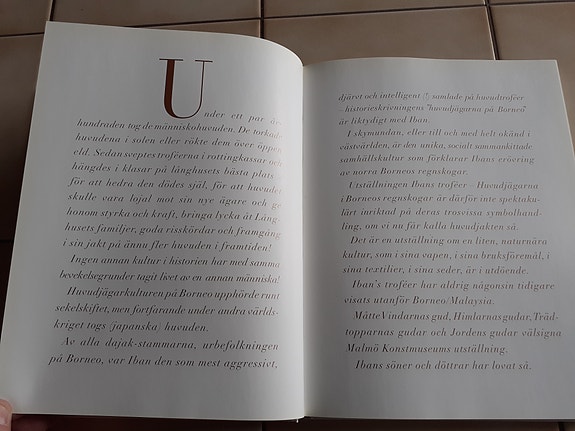 Under ett par år-
hundraden tog de människohuvuden. De torkade
huvudena i solen eller rökte dem över öppen
eld. Sedan sveptes troféerna i rottingkassar och
hängdes i klasar på långhusets bästa plats –
för att hedra den dödes själ, för att huvudet
skulle vara lojal mot sin nye ägare och ge
honom styrka och kraft, bringa lycka åt Lång-
husets familjer, goda risskördar och framgång
i sin jakt på ännu fler huvuden i framtiden!
Ingen annan kultur i historien har med samma
bevekelsegrunder tagit livet av en annan människa!
Huvudjägarkulturen på Borneo upphörde runt
sekelskiftet, men fortfarande under andra världs-
kriget togs (japanska) huvuden.
Av alla dajak-stammarna, urbefolkningen
på Borneo, var Iban den som mest aggressivt,
djärvt och intelligent (!) samlade på huvudtroféer
– historieskrivningens "huvudjägarna på Borneo"
är liktydigt med Iban.
I skymundan, eller till och med helt okänd i
västvärlden, är den unika, socialt sammankittade
samhällskultur som förklarar Ibans erövring
av norra Borneos regnskogar.
Utställningen Ibans troféer – Huvudjägarna
i Borneos regnskogar är därför inte spektaku-
lärt inriktad på deras trosvissa symbolhand-
ling, om vi nu får kalla huvudjakten så.
Det är en utställning om en liten, naturnära
kultur, som i sina vapen, i sina bruksföremål, i
sina textilier, i sina seder, är i utdöende.
Iban's troféer har aldrig någonsin tidigare
visats utanför Borneo/Malaysia.
Måtte Vindarnas gud, Himlarnas gudar, Träd-
topparnas gudar och Jordens gudar välsigna
Malmö Konstmuseums utställning.
Ibans söner och döttrar har lovat så.